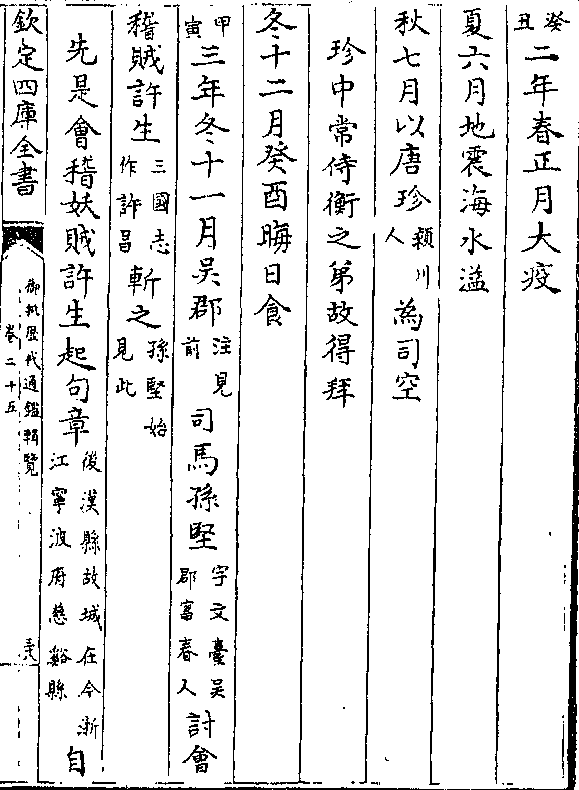 癸丑二年春正月大疫
夏六月地震海水溢
秋七月以唐珍潁川人為司空
珍中常侍衡之弟故得拜
冬十二月癸酉晦日食
甲寅三年冬十一月吳郡注見前司馬孫堅字文臺吳郡富春人討會
稽賊許生三國志作許昌斬之孫堅始見此
先是會稽妖賊許生起句章後漢縣故城在今浙江寧波府慈谿縣自
欽定四庫全書
御批歷代通鑑輯覽
卷二十五